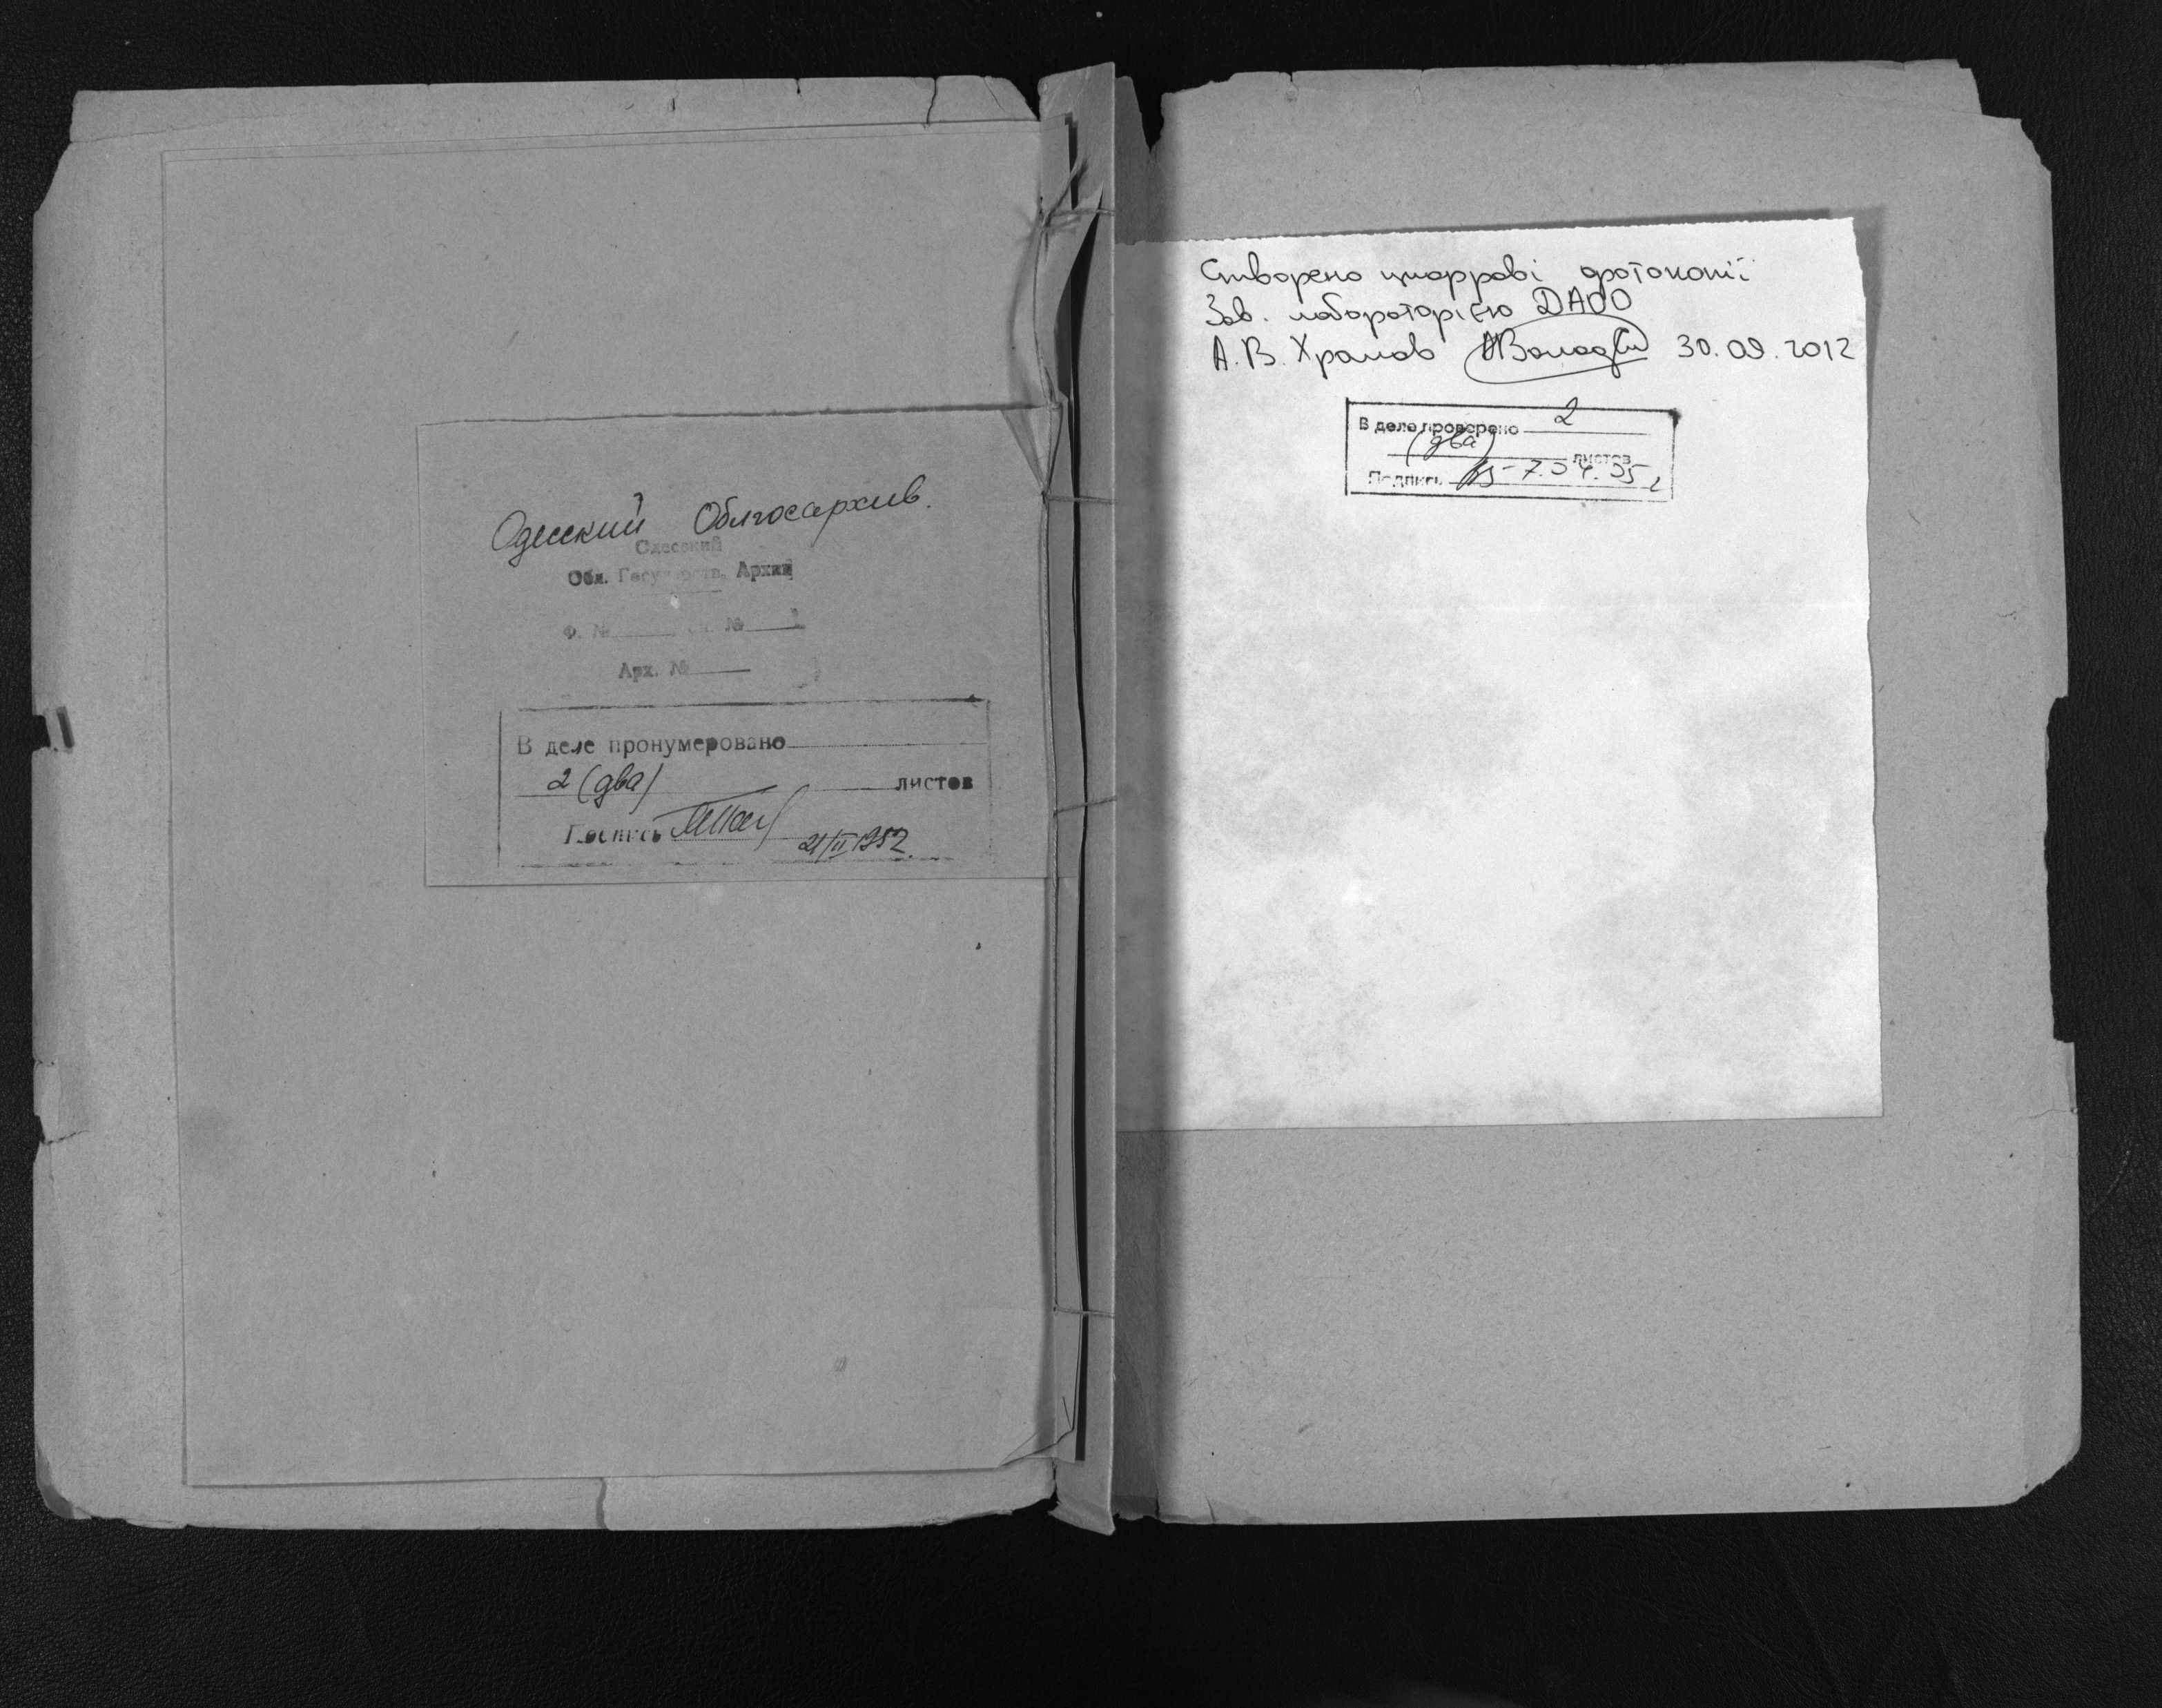 Одесский Облгосархив.
Одесский
Обл. Государств. Архив
Ф. №
№
Арх. №
В деле пронумеровано
2 (два) листов
Роспись
21/II 1952.
Створено цифрові фотокопії
Зав. лабораторією ДАОО
А.В. Храмов 30.09.2012
В деле проверено 2
(два)
листов
Подпись 7.04.95 г